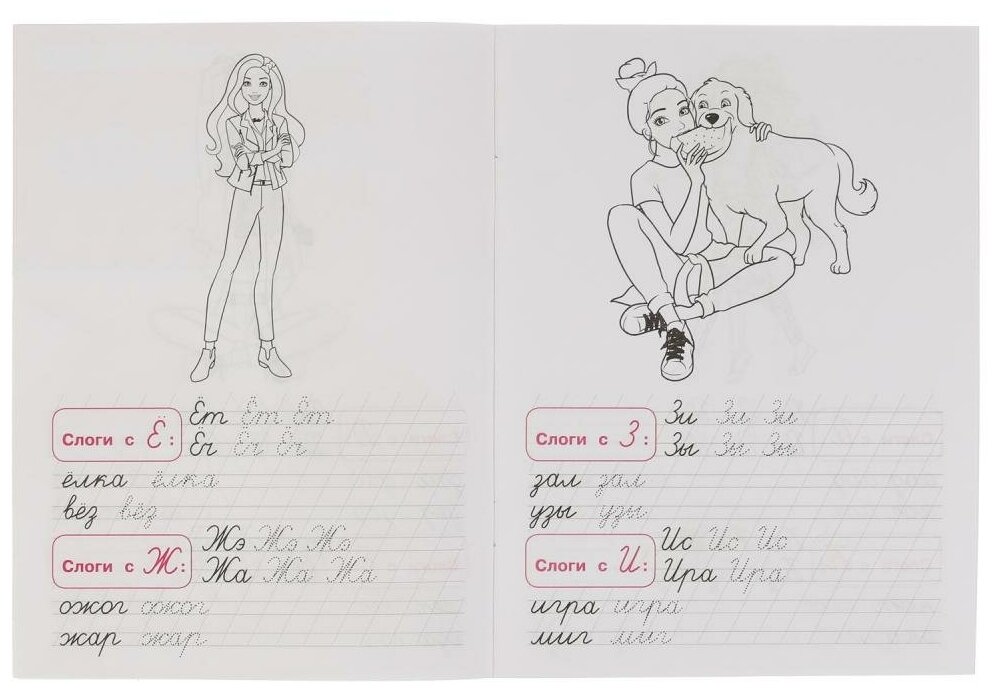 Слоги с Ё:
Ёт Ёт Ёт
Ёг Ёг Ёг
ёлка ёлка
вёз вёз
Слоги с Ж:
Жэ Жэ Жэ
Жа Жа Жа
ожог ожог
жар жар
Слоги с З:
Зи Зи Зи
Зы Зы Зы
зал зал
узы узы
Слоги с И:
Ис Ис Ис
Ира Ира
игра игра
миг миг